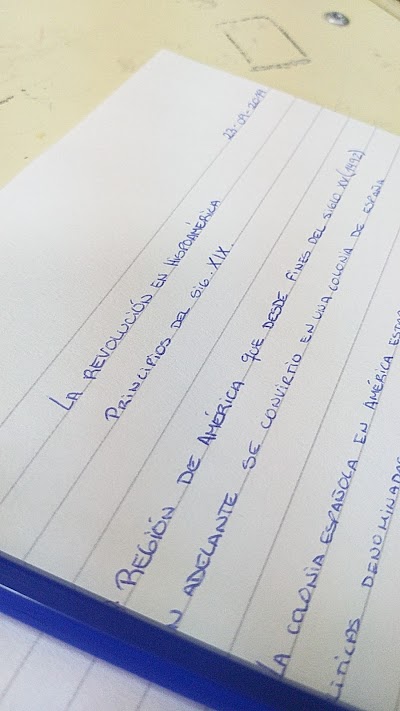 23-04-2019
LA REVOLUCIÓN EN HISPOAMÉRICA
PRINCIPIOS DEL SIG. XIX.
REGIÓN DE AMÉRICA QUE DESDE FINES DEL SIGLO XV (1492)
N ADELANTE SE CONVIRTIO EN UNA COLONIA DE ESPAÑA
LA COLONIA ESPAÑOLA EN AMÉRICA ESTAB
LITICAS DENOMINADAS